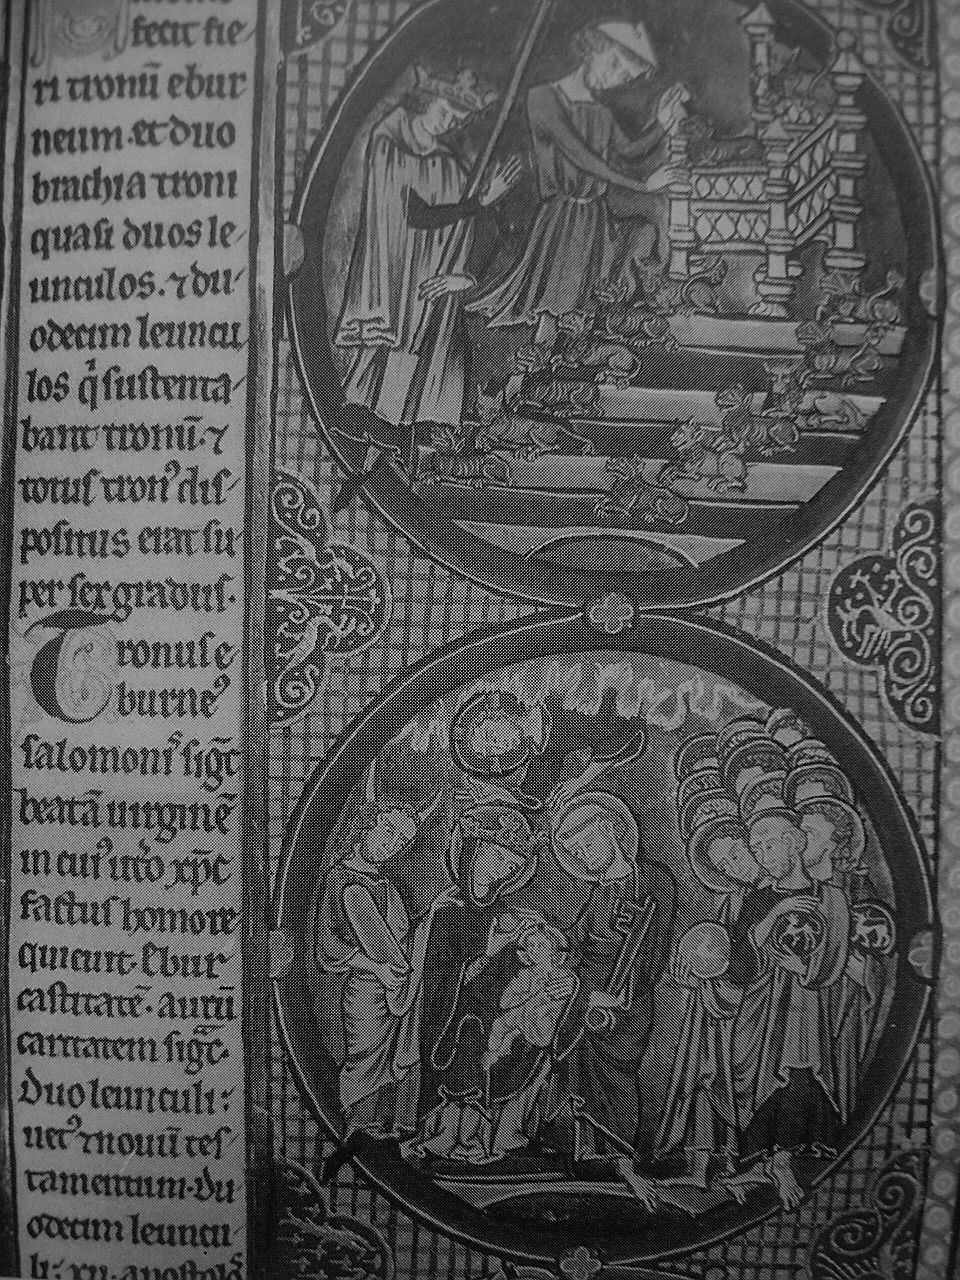 fecit fie
ri tronū ebur
neum. et duo
brachia troni
quasi duos le
unculos. ⁊ du
odecim leuncu
los q̇ sustenta
bant tronū. ⁊
totus tronꝰ dis
positus erat su
per sex gradus.
Tronus e
burneꝰ
salomonis sigt̄
beatā uirginē
in cuiꝰ utō xp̄c
factus homo re
quieuit. Ebur
castitatē. aurū
caritatem sigt̄.
duo leunculi:
uetꝰ ⁊ nouū tes
tamentum. du
odecim leuncu
li: xii. apostolos